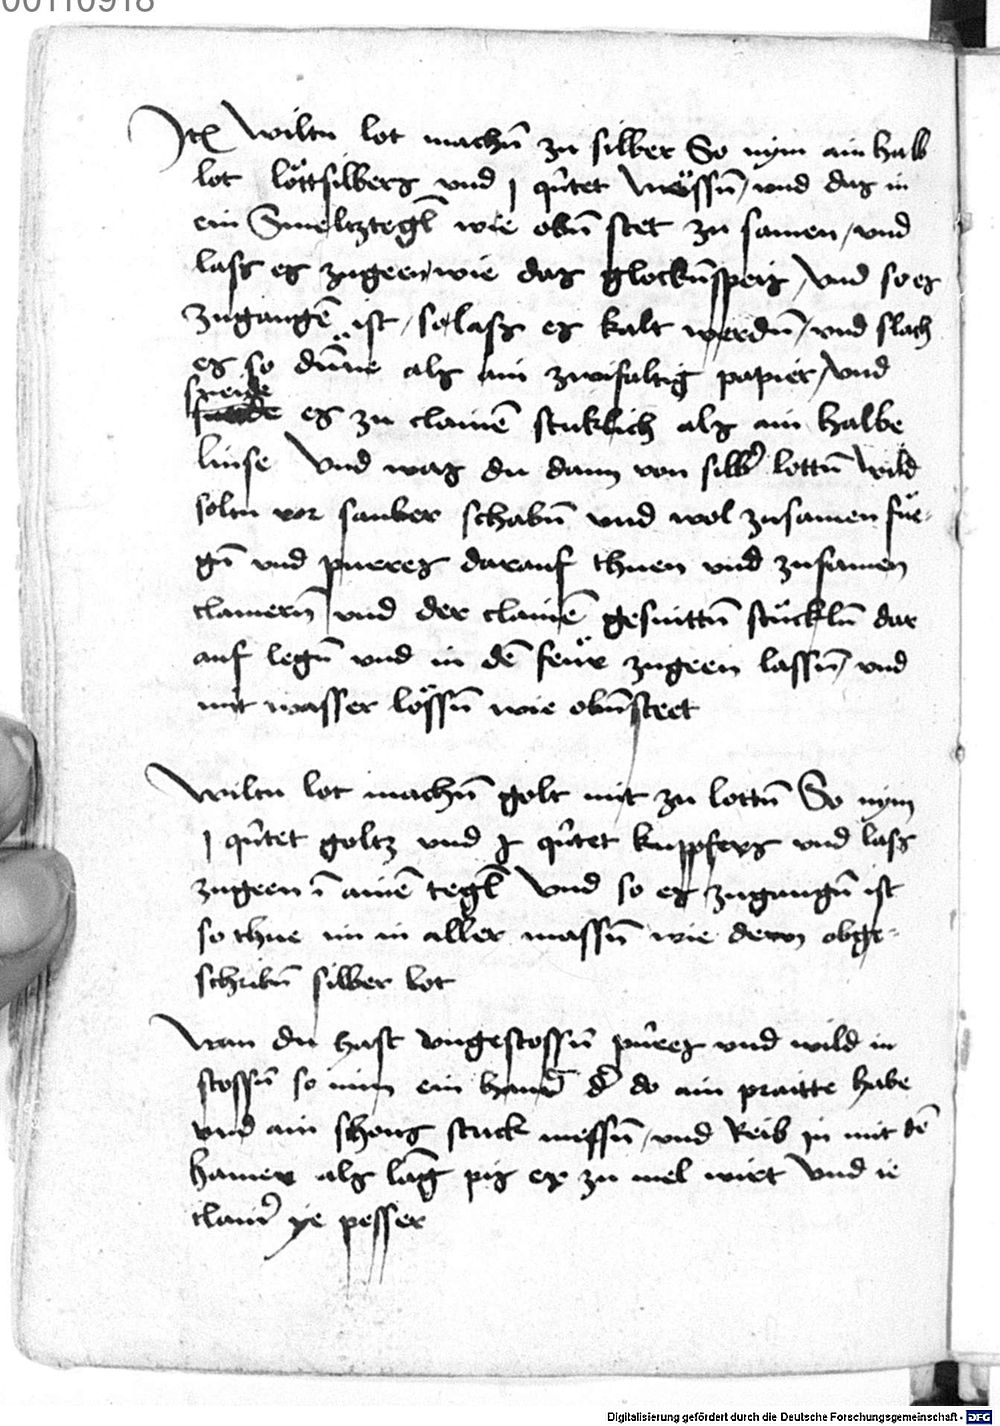 00110918
Itē Wiltu lot machn̄ zu silber So nym ain halb
lot löttsilbers vnd j qūtet Mössn̄ / vnd das in
ein Smeltztegl̄ wie obn̄ stet zu samen / vnd
lass es zugeen / wie das glockn̄speis / Vnd so es
zugangē ist / so lass es kalt werdn̄ / vnd slach
es so dün̄e als ain zwifaltig papier / Vnd
sneide
es zu clainē stuklich als ain halbe
linse Vnd was du dann von silbr̄ lottn̄ wild
soltu vor sauber schabn̄ vnd wol zusamen füe-
gn̄ vnd purres darauf thuen vnd zusamen
clamern̄ vnd der clainē gesnittn̄ stückln̄ dar
auf legn̄ vnd in dē feür zugeen lassn̄ / vnd
mit wasser lössn̄ wie obn̄steet
Wiltu lot machn̄ golt mit zu lottn̄ So nym
j qūtet goltz vnd j qūtet kuppfers vnd lass
zugeen ī ainē tegl̄ Vnd so es zugangn̄ ist
so thue im in aller massn̄ wie dem obge-
schribn̄ silber lot
Wan du hast vngestossn̄ pūres vnd wild in
stossn̄ so nim ein ham̄ d̄ do ain praitte habe
vnd ain schons stuck messn̄ / vnd Reib in mit dē
hamer als lāg pis er zu mel wirt Vnd ie
clainr̄ ye pesser
Digitalisierung gefördert durch die Deutsche Forschungsgemeinschaft - DFG